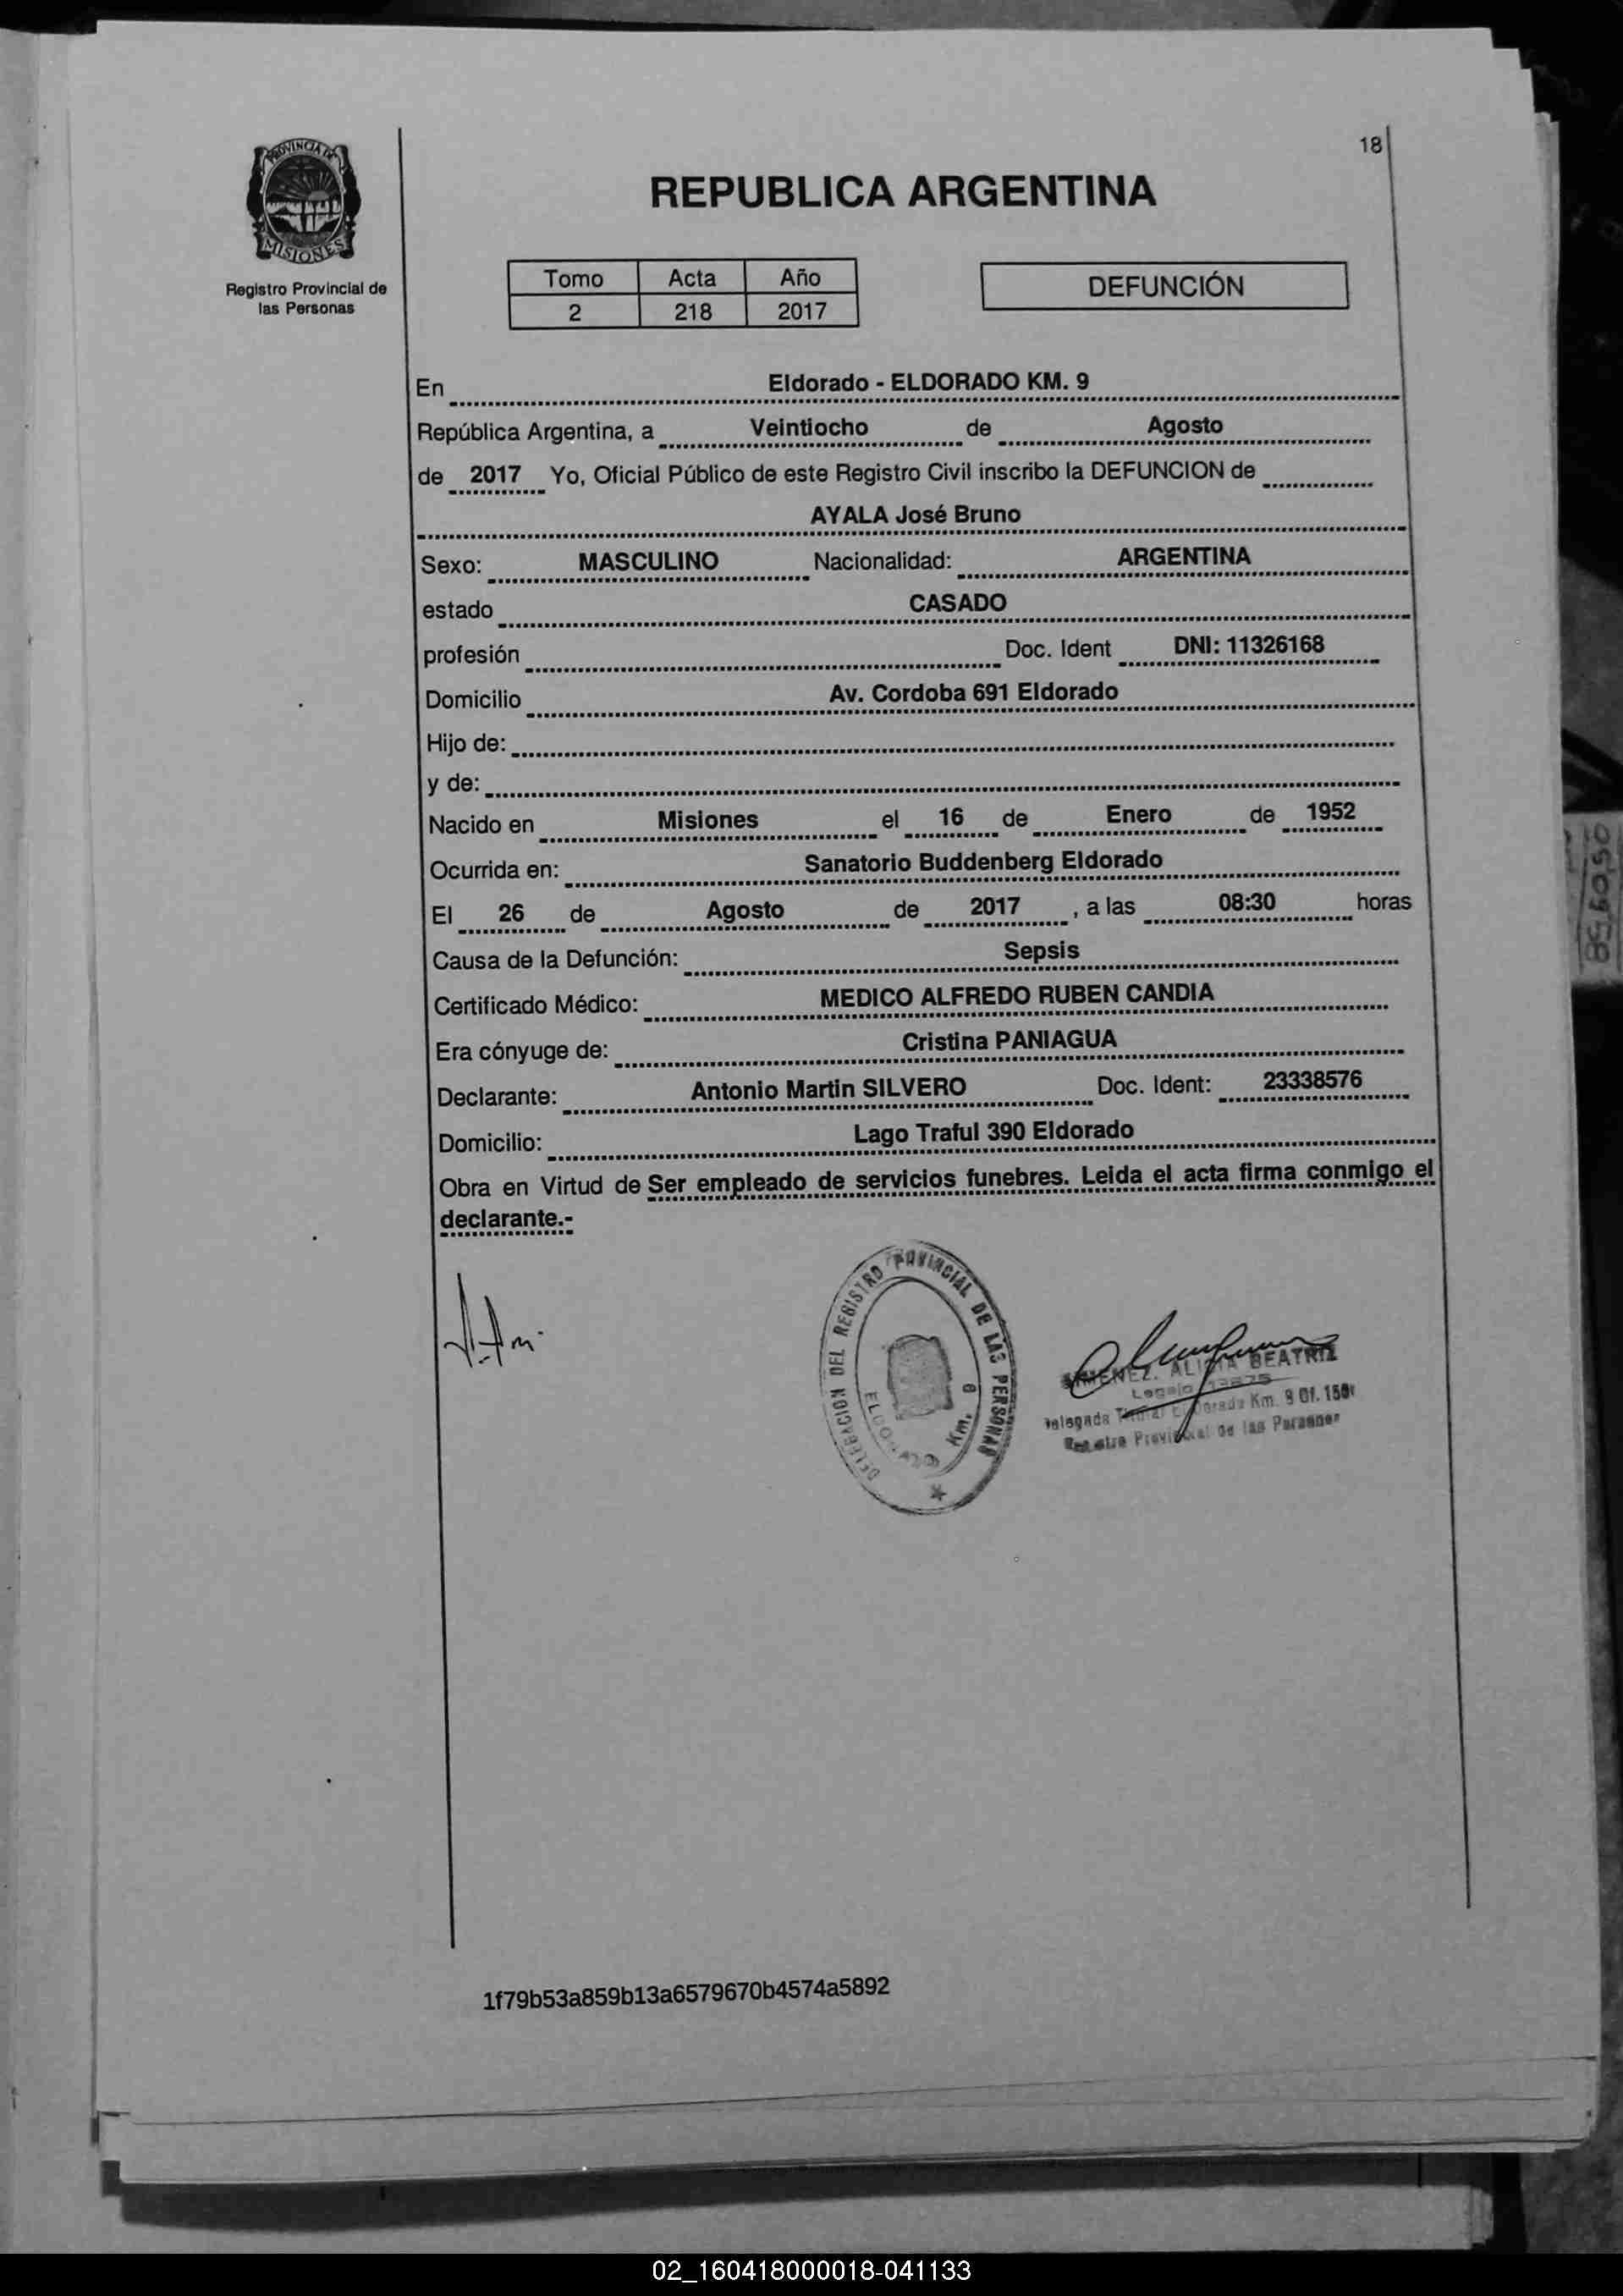 18
PROVINCIA DE
MISIONES
Registro Provincial de
las Personas
REPUBLICA ARGENTINA
Tomo Acta Año
2 218 2017
DEFUNCIÓN
En Eldorado - ELDORADO KM. 9
República Argentina, a Veintiocho de Agosto
de 2017 Yo, Oficial Público de este Registro Civil inscribo la DEFUNCION de
AYALA José Bruno
Sexo: MASCULINO Nacionalidad: ARGENTINA
estado CASADO
profesión Doc. Ident DNI: 11326168
Domicilio Av. Cordoba 691 Eldorado
Hijo de:
y de:
Nacido en Misiones el 16 de Enero de 1952
Ocurrida en: Sanatorio Buddenberg Eldorado
El 26 de Agosto de 2017 , a las 08:30 horas
Causa de la Defunción: Sepsis
Certificado Médico: MEDICO ALFREDO RUBEN CANDIA
Era cónyuge de: Cristina PANIAGUA
Declarante: Antonio Martin SILVERO Doc. Ident: 23338576
Domicilio: Lago Traful 390 Eldorado
Obra en Virtud de Ser empleado de servicios funebres. Leida el acta firma conmigo el
declarante.-
DELEGACION DEL REGISTRO PROVINCIAL DE LAS PERSONAS
ELDORADO Km.
ALICIA BEATRIZ
Km. 9 Of.
de las Personas
1f79b53a859b13a6579670b4574a5892
02_160418000018-041133